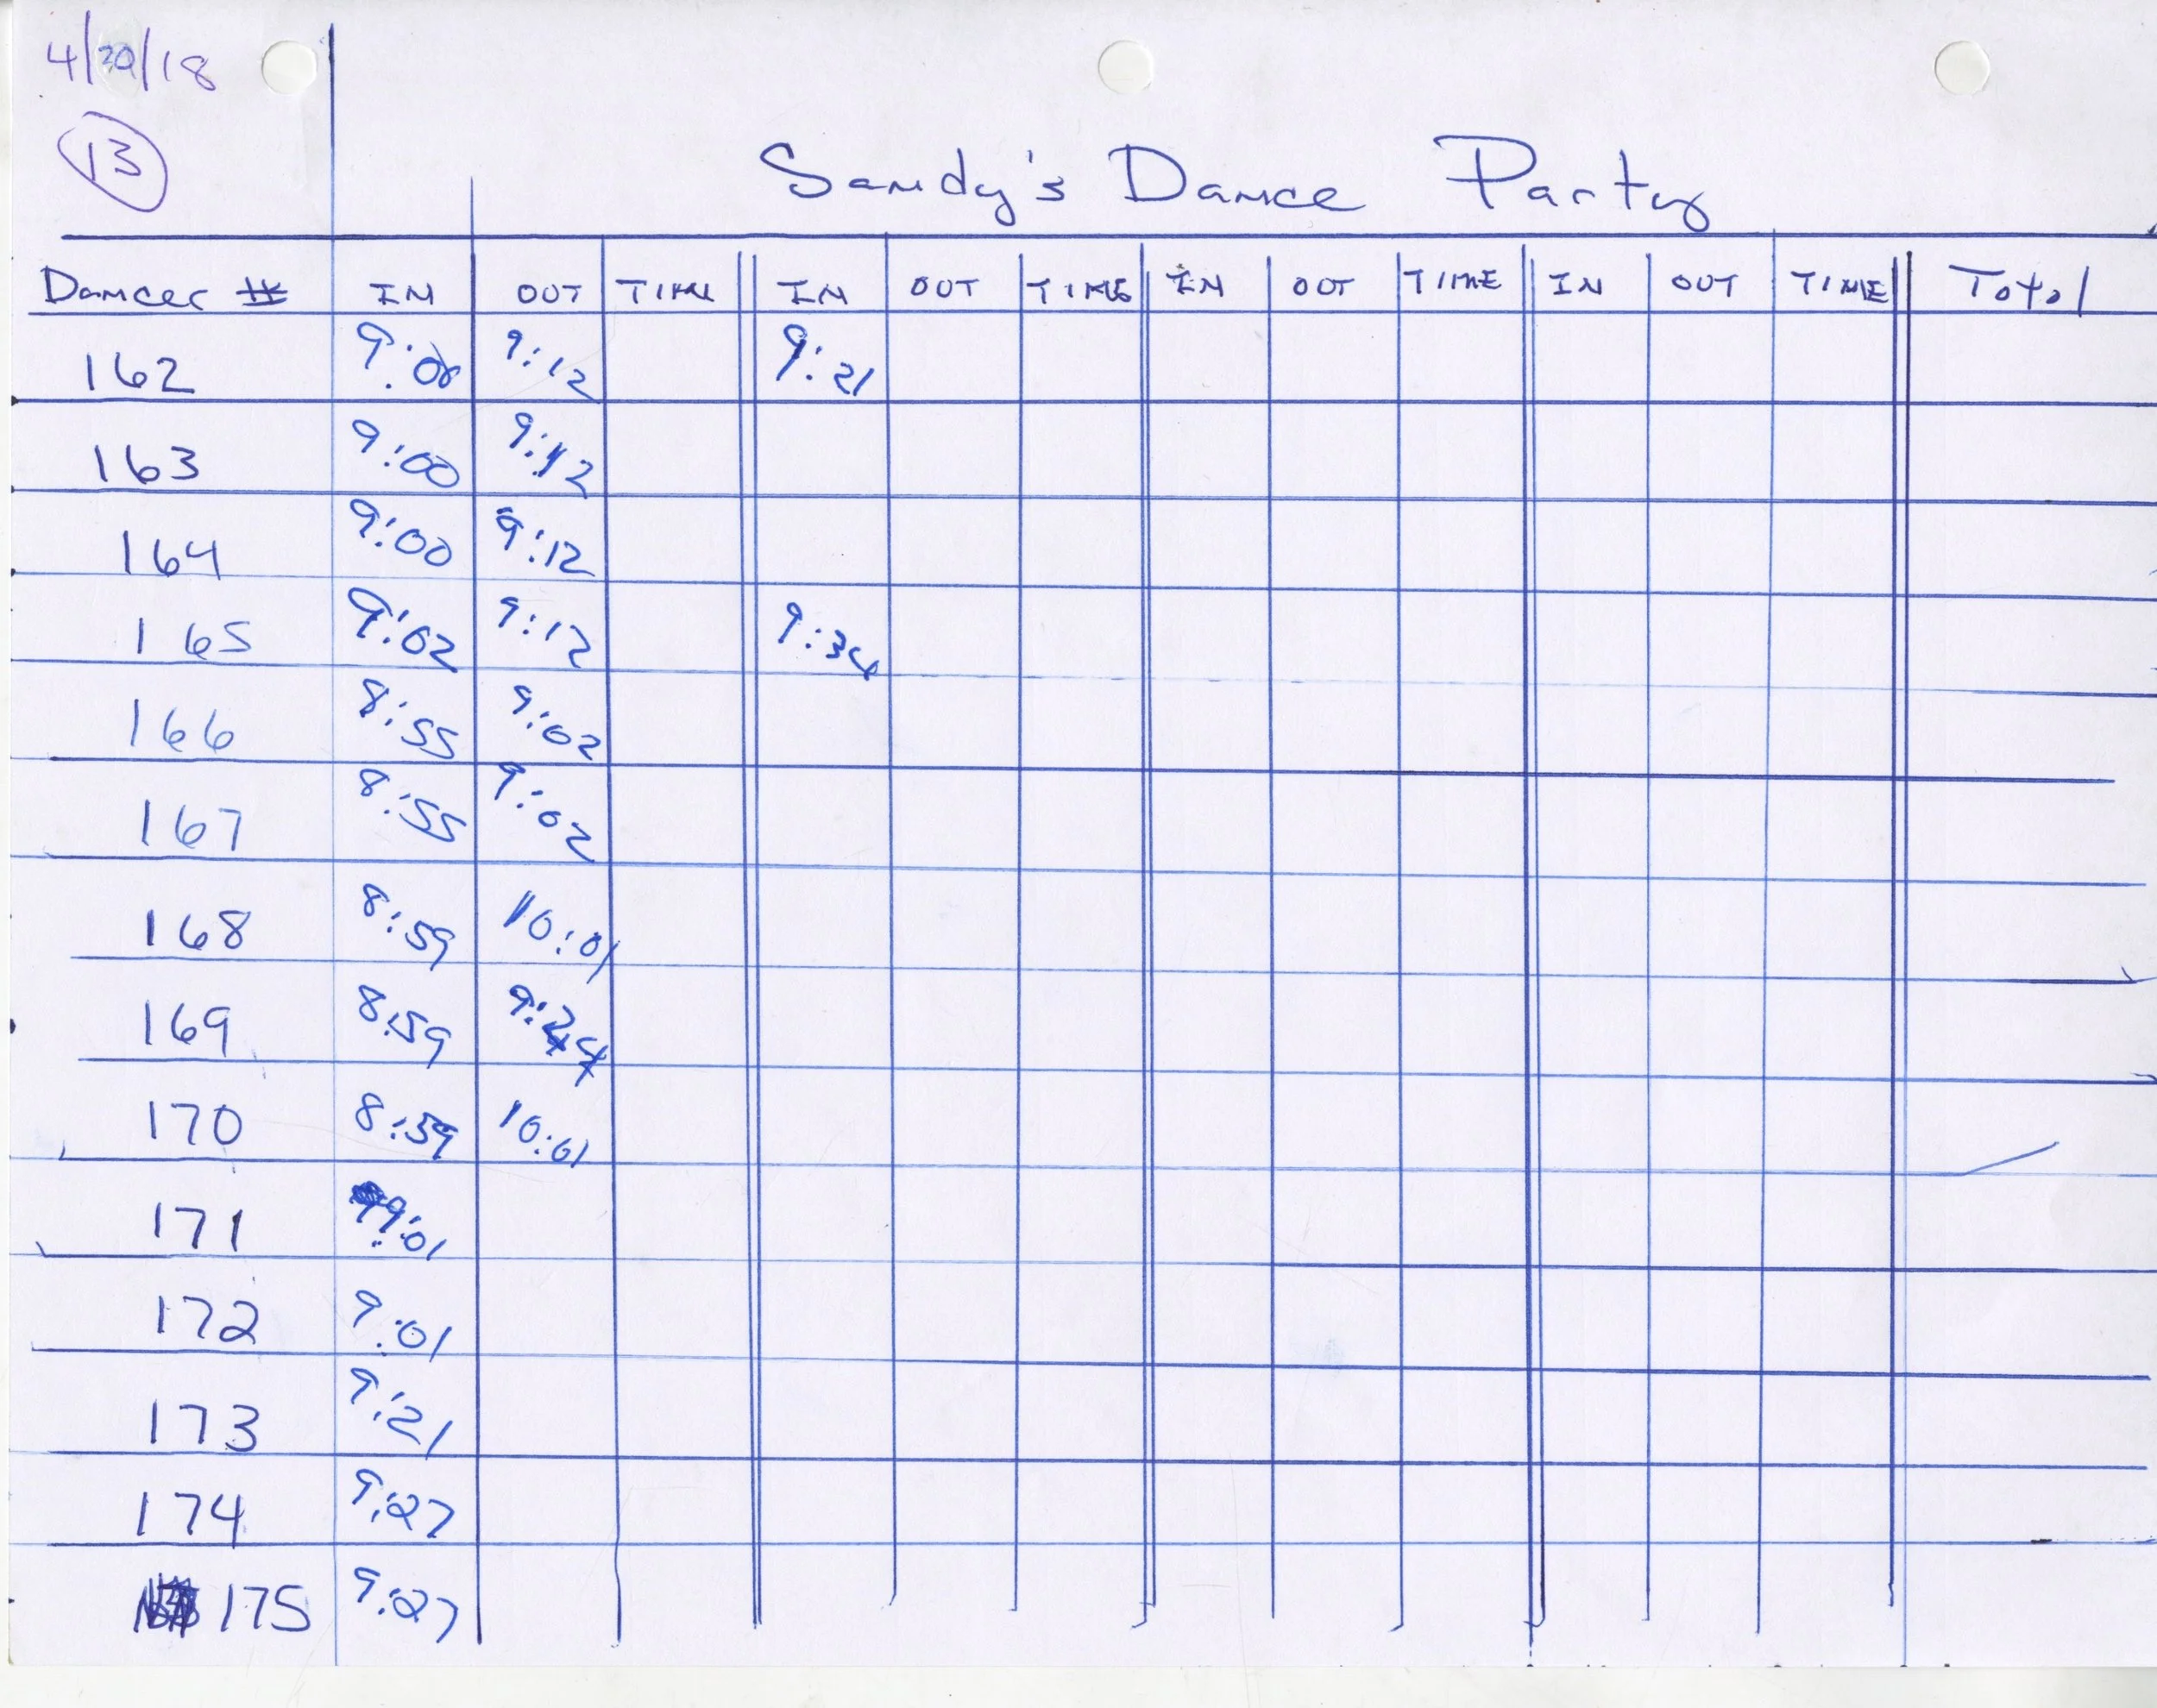 4/20/18
13
Sandy's Dance Party
Dancer # IN OUT TIME IN OUT TIME IN OUT TIME IN OUT TIME Total
162 9:00 9:12 9:21
163 9:00 9:12
164 9:00 9:12
165 9:02 9:12 9:34
166 8:55 9:02
167 8:55 9:02
168 8:59 10:01
169 8:59 9:24
170 8:59 10:01
171 9:01
172 9:01
173 9:21
174 9:27
175 9:27